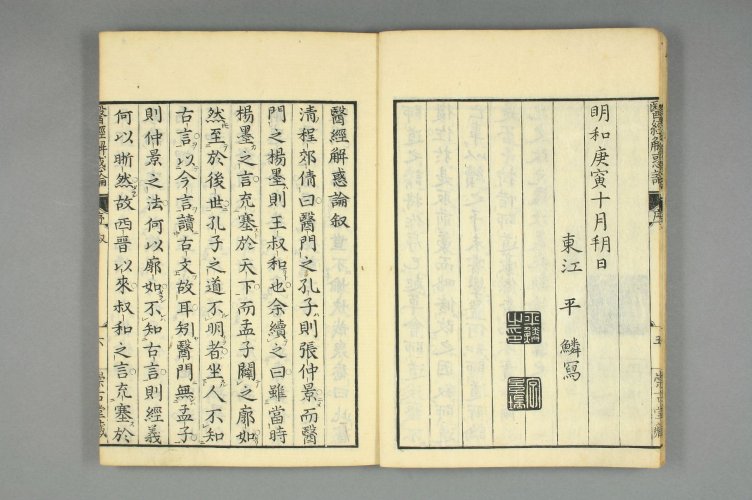 明和庚寅十月朔日
東江 平 鱗寫
醫經解惑論叙
清程郊倩曰醫門之孔子則張仲景而醫
門之楊墨則王叔和也余續之曰雖當時
楊墨之言充塞於天下而孟子闢之廓如
然至於後世孔子之道不明者坐人不知
古言以今言讀古文故耳矧醫門無孟子
則仲景之法何以廓如不知古言則經義
何以晰然故西晋以來叔和之言充塞於
醫經解惑論 序 五 崇古堂藏
醫經解惑論 序 叙 六 崇古堂藏